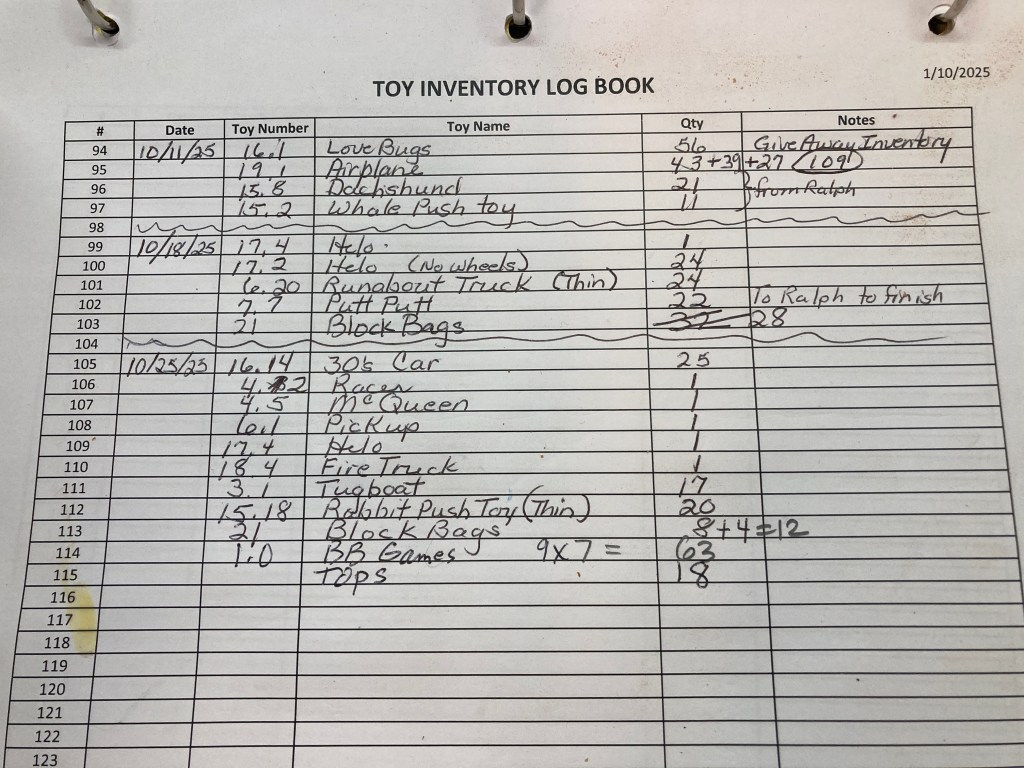 1/10/2025
TOY INVENTORY LOG BOOK
# Date Toy Number Toy Name Qty Notes
94 10/11/25 16.1 Love Bugs 56 Give Away Inventory
95 19.1 Airplane 43+39+27 (109)
96 15.8 Dachshund 21 } from Ralph
97 15.2 Whale Push toy 11
98
99 10/18/25 17.4 Helo 1
100 17.2 Helo (No wheels) 24
101 6.20 Runabout Truck (Thin) 24
102 7.7 Putt Putt 22 To Ralph to finish
103 21 Block Bags 37 28
104
105 10/25/25 16.14 30's Car 25
106 4.2 Racer 1
107 4.5 McQueen 1
108 6.1 Pickup 1
109 17.4 Helo 1
110 18.4 Fire Truck 1
111 3.1 Tugboat 17
112 15.18 Rabbit Push Toy (Thin) 20
113 21 Block Bags 8+4=12
114 1.0 BB Games 9x7= 63
115 Tops 18
116
117
118
119
120
121
122
123